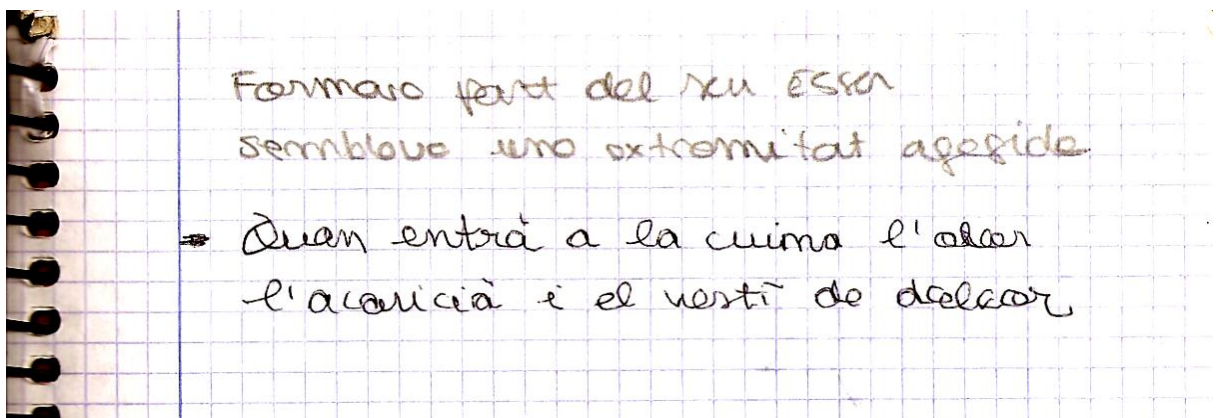 Formava part del seu ESSER
semblava una extremitat afegida
- Quan entrà a la cuina l'olor
l'acaricià i el vestí de dolçor